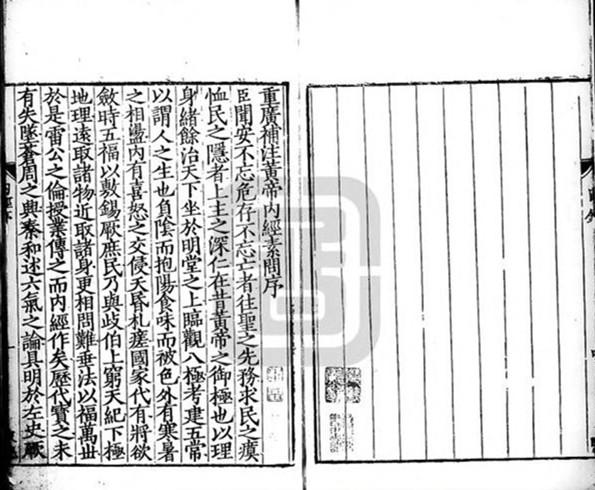 重廣補注黃帝內經素問序
臣聞安不忘危存不忘亡者往聖之先務求民之瘼
恤民之隱者上主之深仁在昔黃帝之御極也以理
身緒餘治天下坐於明堂之上臨觀八極考建五常
以謂人之生也負陰而抱陽食味而被色外有寒暑
之相盪內有喜怒之交侵夭昏札瘥國家代有將欲
斂時五福以敷錫厥庶民乃與歧伯上窮天紀下極
地理遠取諸物近取諸身更相問難垂法以福萬世
於是雷公之倫授業傳之而內經作矣歷代寶之未
有失墜蒼周之興秦和述六氣之論具明於左史厥